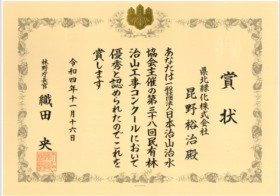 賞状
県北緑化株式会社
昆野裕治殿
あなたは一般社団法人日本治山治水
協会主催の第三十八回民有林
治山工事コンクールにおいて
優秀と認められたのでこれを
賞します
令和四年十一月十六日
林野庁長官
織田央